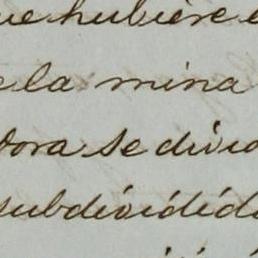 ue hubiere e
e la mina
dora se divid
subdividida